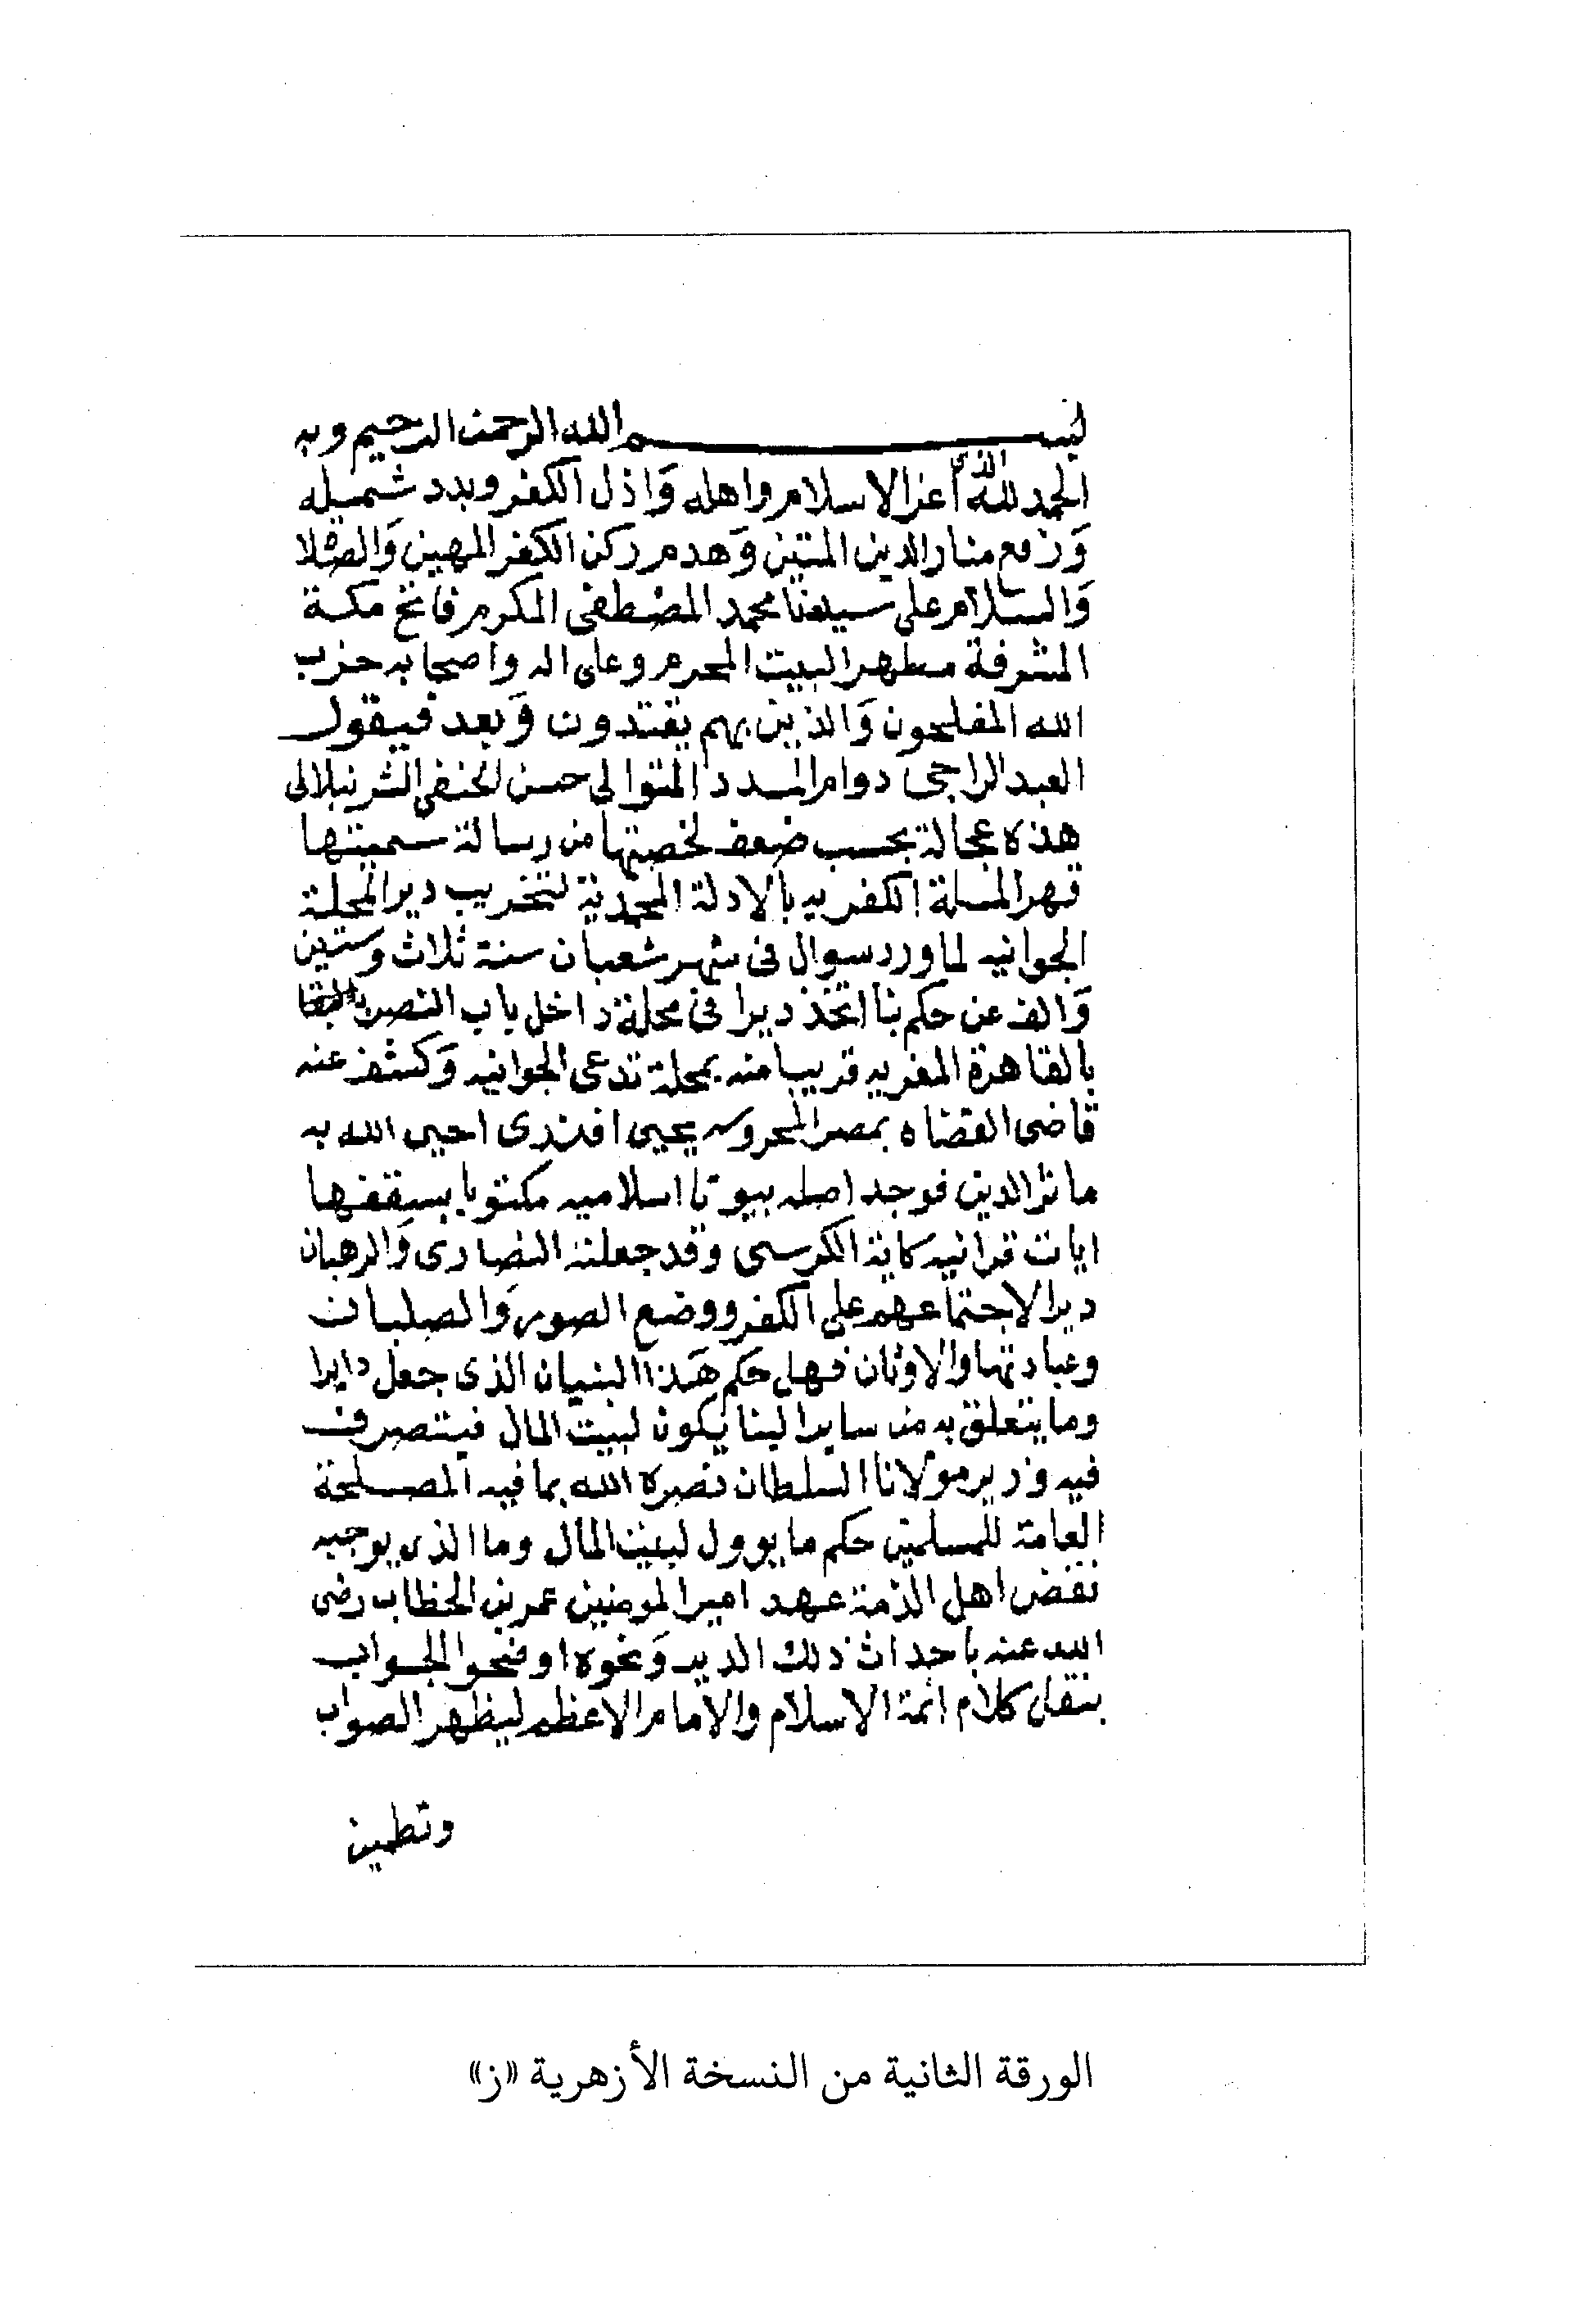 بسم الله الرحمن الرحيم وبه
الحمد لله الذى أعز الاسلام واهله وَاذل الكفر وبدد شمله
وَرفع منار الدين المتين وَهدم ركن الكفر المهين وَالصلا
وَالسلام على سيدنا محمد المصطفى المكرم فاتح مكة
المشرفة مطهر البيت المحرم وعلى اله واصحابه حزب
الله المفلحون وَالذين بهم يقتدون وَبعد فيقول
العبد الراجى دوام المدد المتوالي حسن الحنفى الشرنبلالى
هذه عجالة بحسب ضعف لخصتها من رسالة سميتها
قهر الملة الكفريه بالادلة المحمدية لتخريب دير المحلة
الجوانيه لما ورد سوال فى شهر شعبان سنة ثلاث وستين
وَالف عن حكم بنا اتخذ ديرا في محلة داخل باب النصر
بالقاهرة المغريه قريبا منه بمحلة تدعى الجوانيه وَكشف عنه
قاضى القضاه بمصر المحروسه يحيى افندى احيى الله به
ماثر الدين فوجد اصله بيوتا اسلاميه مكتوبا بسقفها
ايات قرانيه كاية الكرسى وقد جعلته النصارى وَالرهبان
ديرا لاجتماعهم على الكفر ووضع الصور وَالصلبان
وعبادتها والاوثان فهل حكم هَذا البنيان الذى جعل دايرا
وما يتعلق به من ساير البنا يكون لبيت المال فيتصرف
فيه وزير مولانا السلطان نصره الله بما فيه المصلحة
العامة للمسلمين حكم ما يوول لبيت المال وما الذى يوجبه
نقض اهل الذمة عهد امير المومنين عمر بن الخطاب رضى
الله عنه باحداث ذلك الدير وَنحوه اوضحوا الجواب
بنقل كلام ائمة الاسلام والامام الاعظم ليظهر الصواب
وتطمين
الورقة الثانية من النسخة الأزهرية «ز»